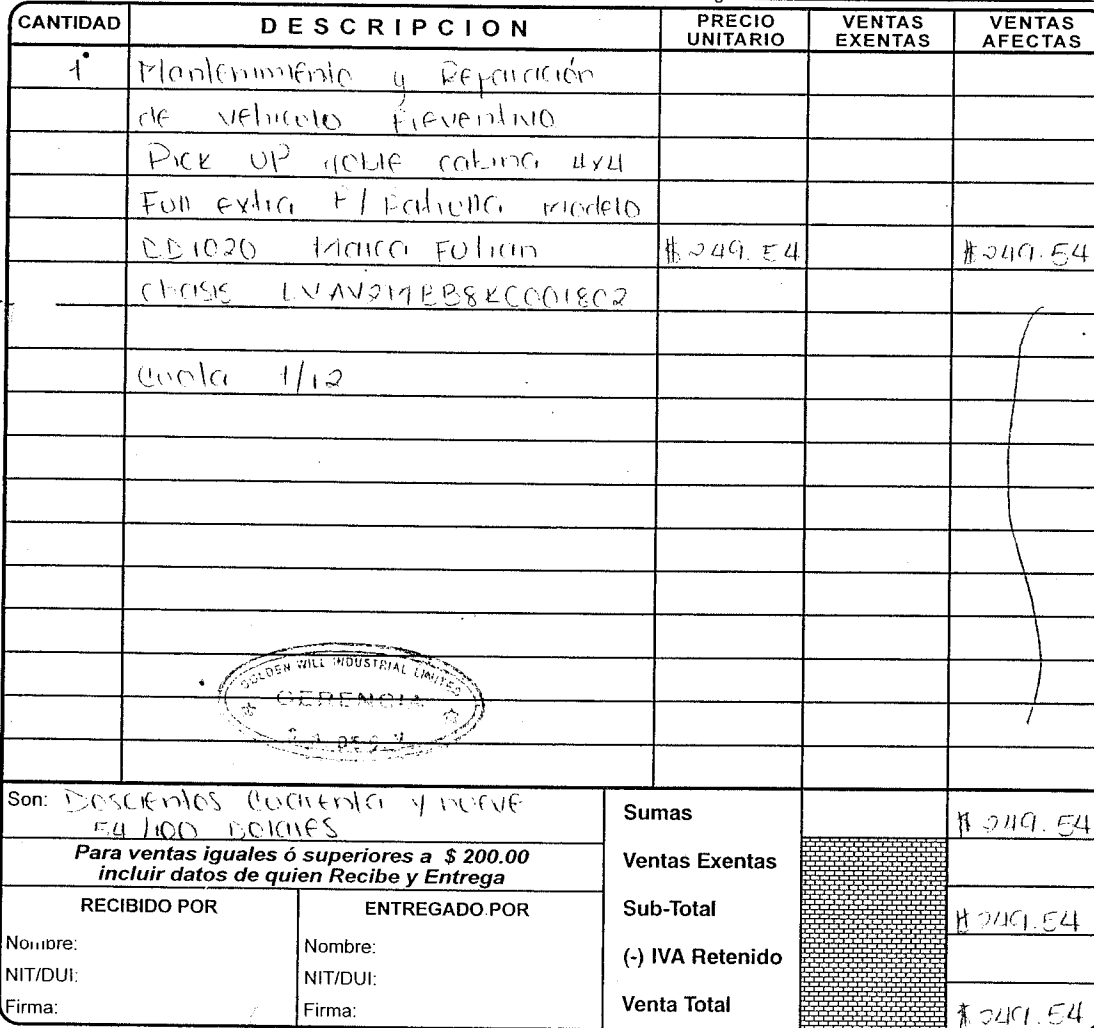 CANTIDAD DESCRIPCION PRECIO UNITARIO VENTAS EXENTAS VENTAS AFECTAS
1 Mantenimiento y Reparación
de vehiculo Preventivo
Pick UP doble cabina 4x4
Full extra P/ Patrulla modelo
DD1020 Marca Fulian $249.54 $249.54
chasis LVAV2MBB8KC001802
Cuota 1/12
GOLDEN WILL INDUSTRIAL LIMITED
GERENCIA
DE C.V
Son: Doscientos Cuarenta y nueve
54/100 Dolares
Para ventas iguales ó superiores a $ 200.00
incluir datos de quien Recibe y Entrega
RECIBIDO POR ENTREGADO POR
Nombre: Nombre:
NIT/DUI: NIT/DUI:
Firma: Firma:
Sumas $249.54
Ventas Exentas
Sub-Total $249.54
(-) IVA Retenido
Venta Total $249.54